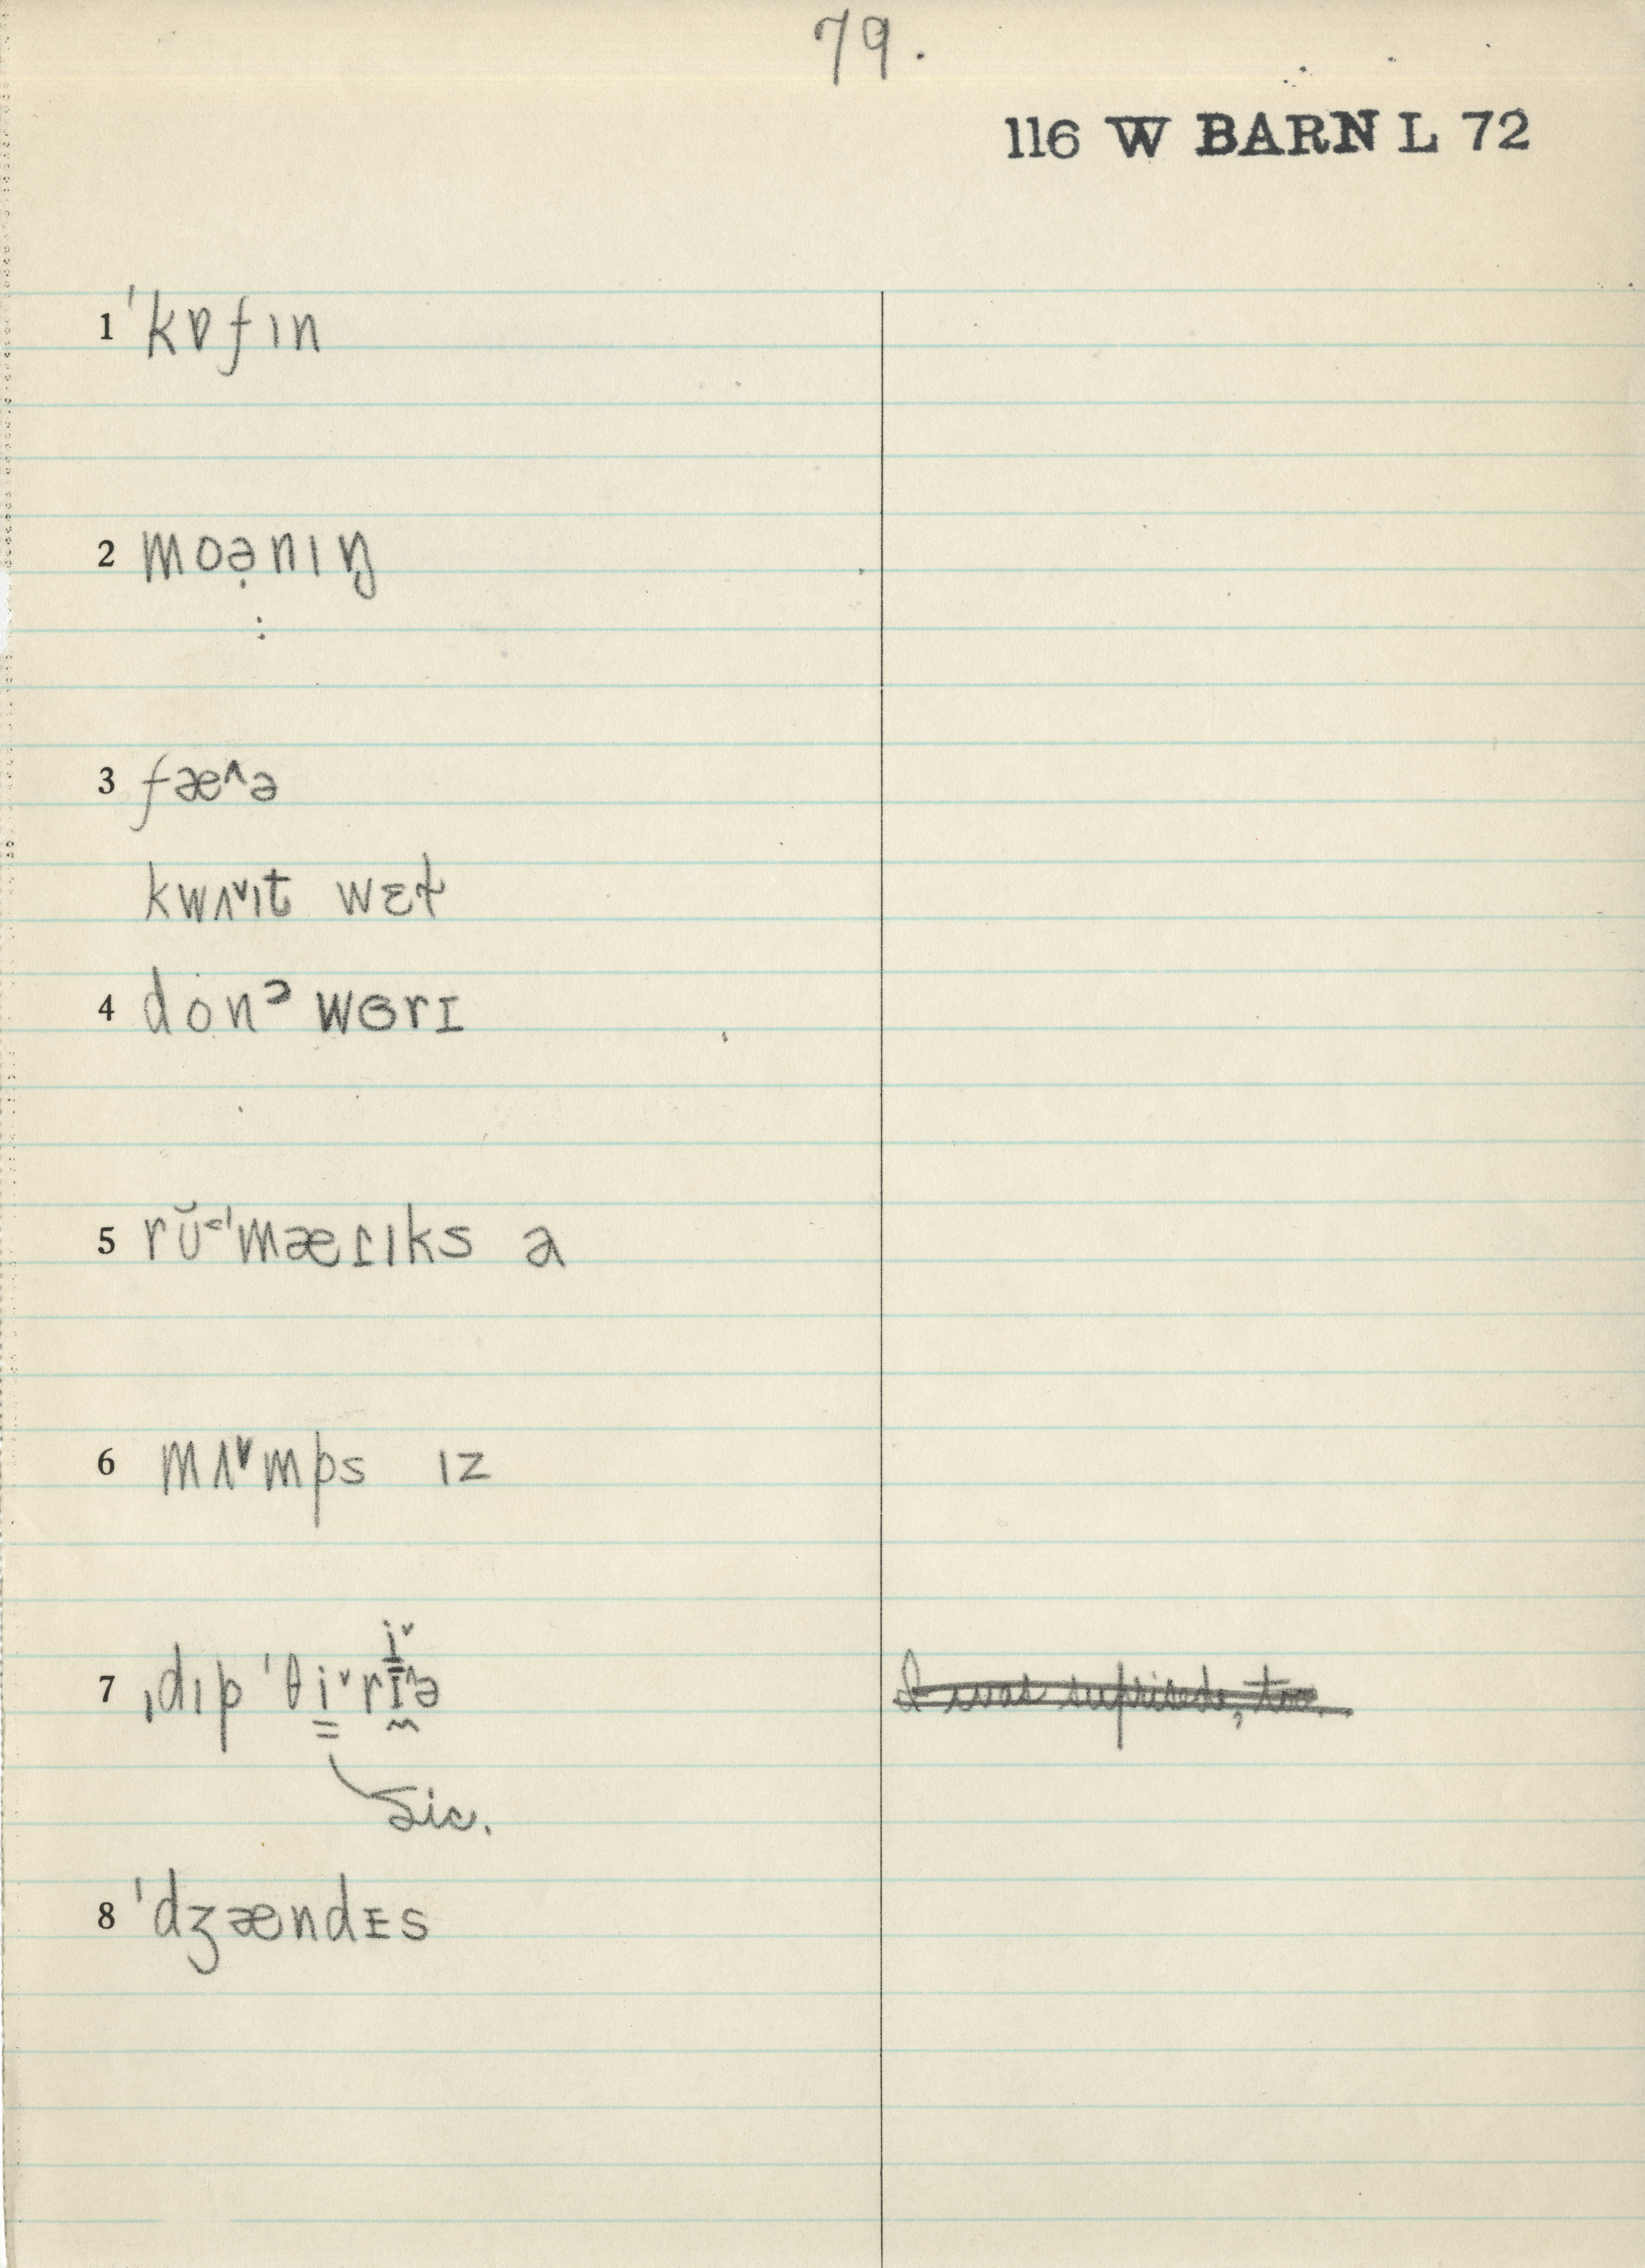 79.
116 W BARN L 72
1 ˈkɒfɪn
2 moə̣nɪŋ
3 fæ^ə
kwʌ˅ɪt wɛt̬
4 don ᵊ wɜrɪ
5 rŭ˂ˈmæɾɪks a
6 mʌ˅mps ɪz
i˅
7 ˌdɪpˈθi˅rɪ^ə
I was suprised, too.
Sic.
8 ˈdʒændɪs